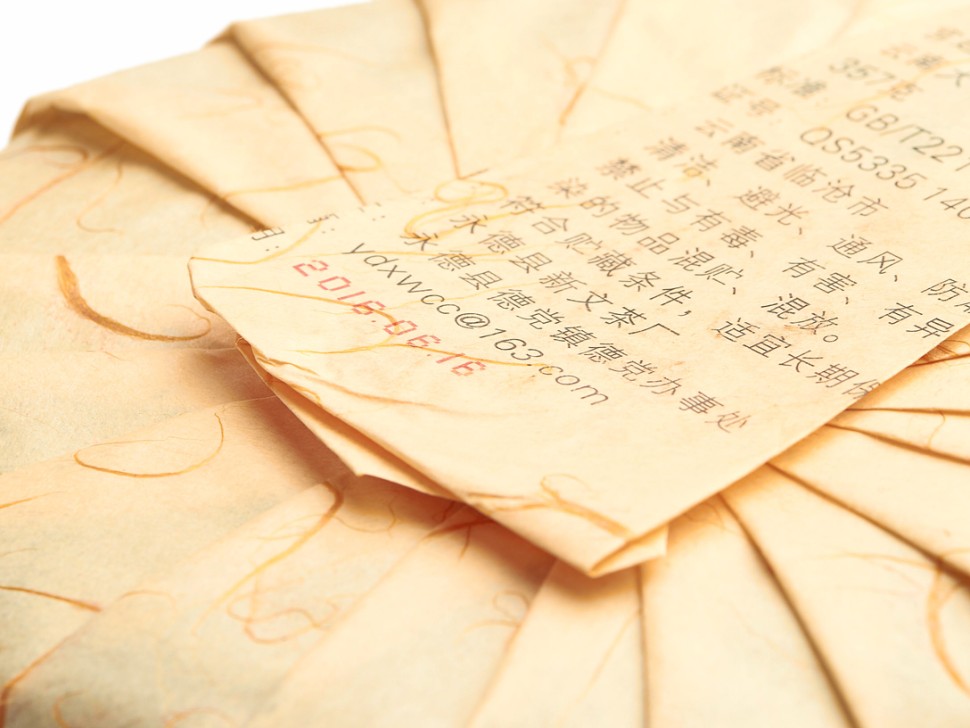 云南大
357克
标准: GB/T221
证号: QS5335 140
云南省临沧市
清洁、避光、通风、防
禁止与有毒、有害、有异
染的物品混贮、混放。
符合贮藏条件，适宜长期保
永德县新文茶厂
永德县德党镇德党办事处
ydxwcc@163.com
2018.06.16